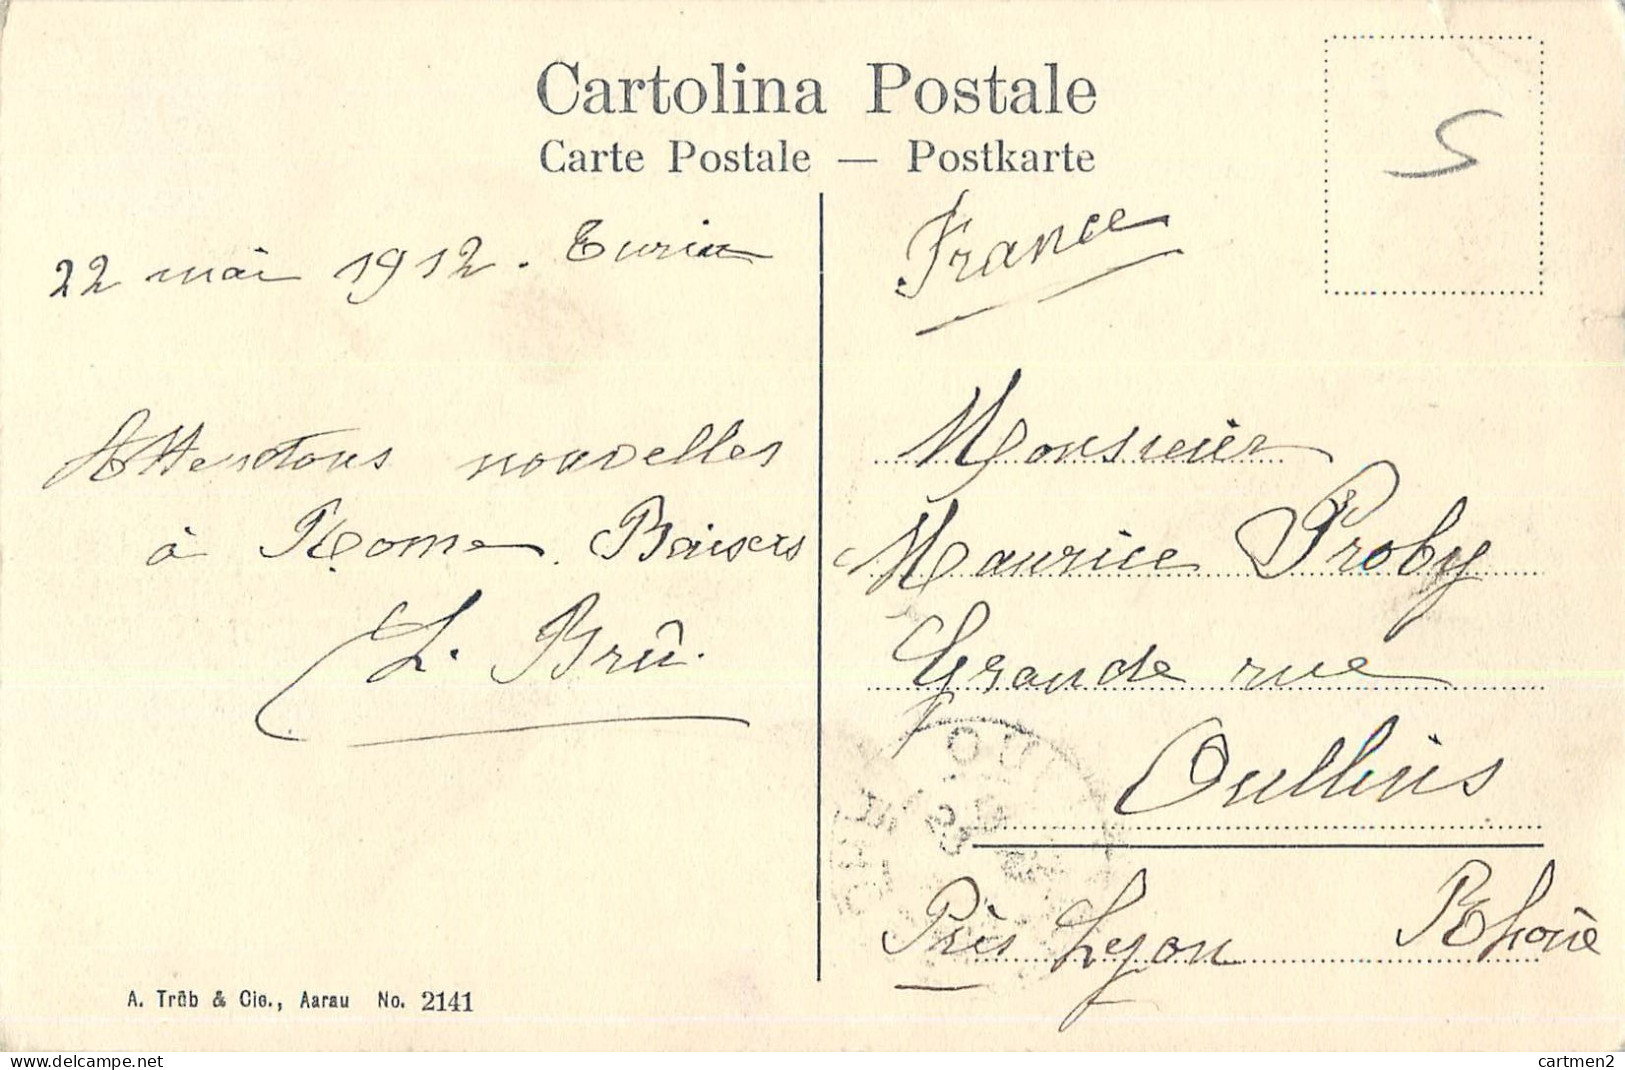 Cartolina Postale
Carte Postale — Postkarte
S
22 mai 1912. Turin
France
Attendons nouvelles
à Rome. Baisers
L. Brû.
Monsieur
Maurice Proby
Grande rue
Oullins
Près Lyon Rhône
A. Trüb & Cie., Aarau No. 2141
https://www.delcampe.net
cartmen2